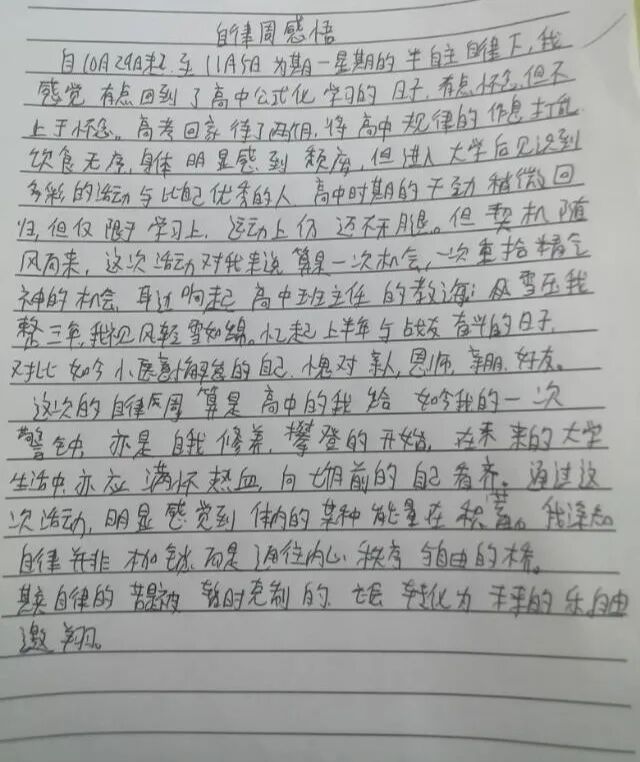 自律周感悟
自10月29日起至11月5日为期一星期的半自主自律下,我
感觉有点回到了高中公式化学习的日子,有点怀念,但不
止于怀念。高考回家待了两个月,将高中规律的作息打乱
饮食无序,身体明显感到颓废,但进入大学后见识到
多彩的活动与比自己优秀的人,高中时期的干劲稍微回
归,但仅限于学习上,运动上仍还不明显。但契机随
风而来,这次活动对我来说算是一次机会,一次重拾精气
神的机会,耳边响起高中班主任的教诲:风雪压我
整三年,我视风轻雪如绵。忆起上半年与战友奋斗的日子,
对比如今小医懈怠的自己,愧对亲人,恩师,亲朋,好友。
这次的自律周算是高中的我给如今我的一次
警钟,亦是自我修养,攀登的开始,在未来的大学
生活中亦应满怀热血,向以前的自己看齐。通过这
次活动,明显感觉到体内的某种能量在积蓄。我深知
自律并非枷锁,而是通往内心秩序与自由的桥。
自律的暂时克制的转化为未来的自由
遨翔。